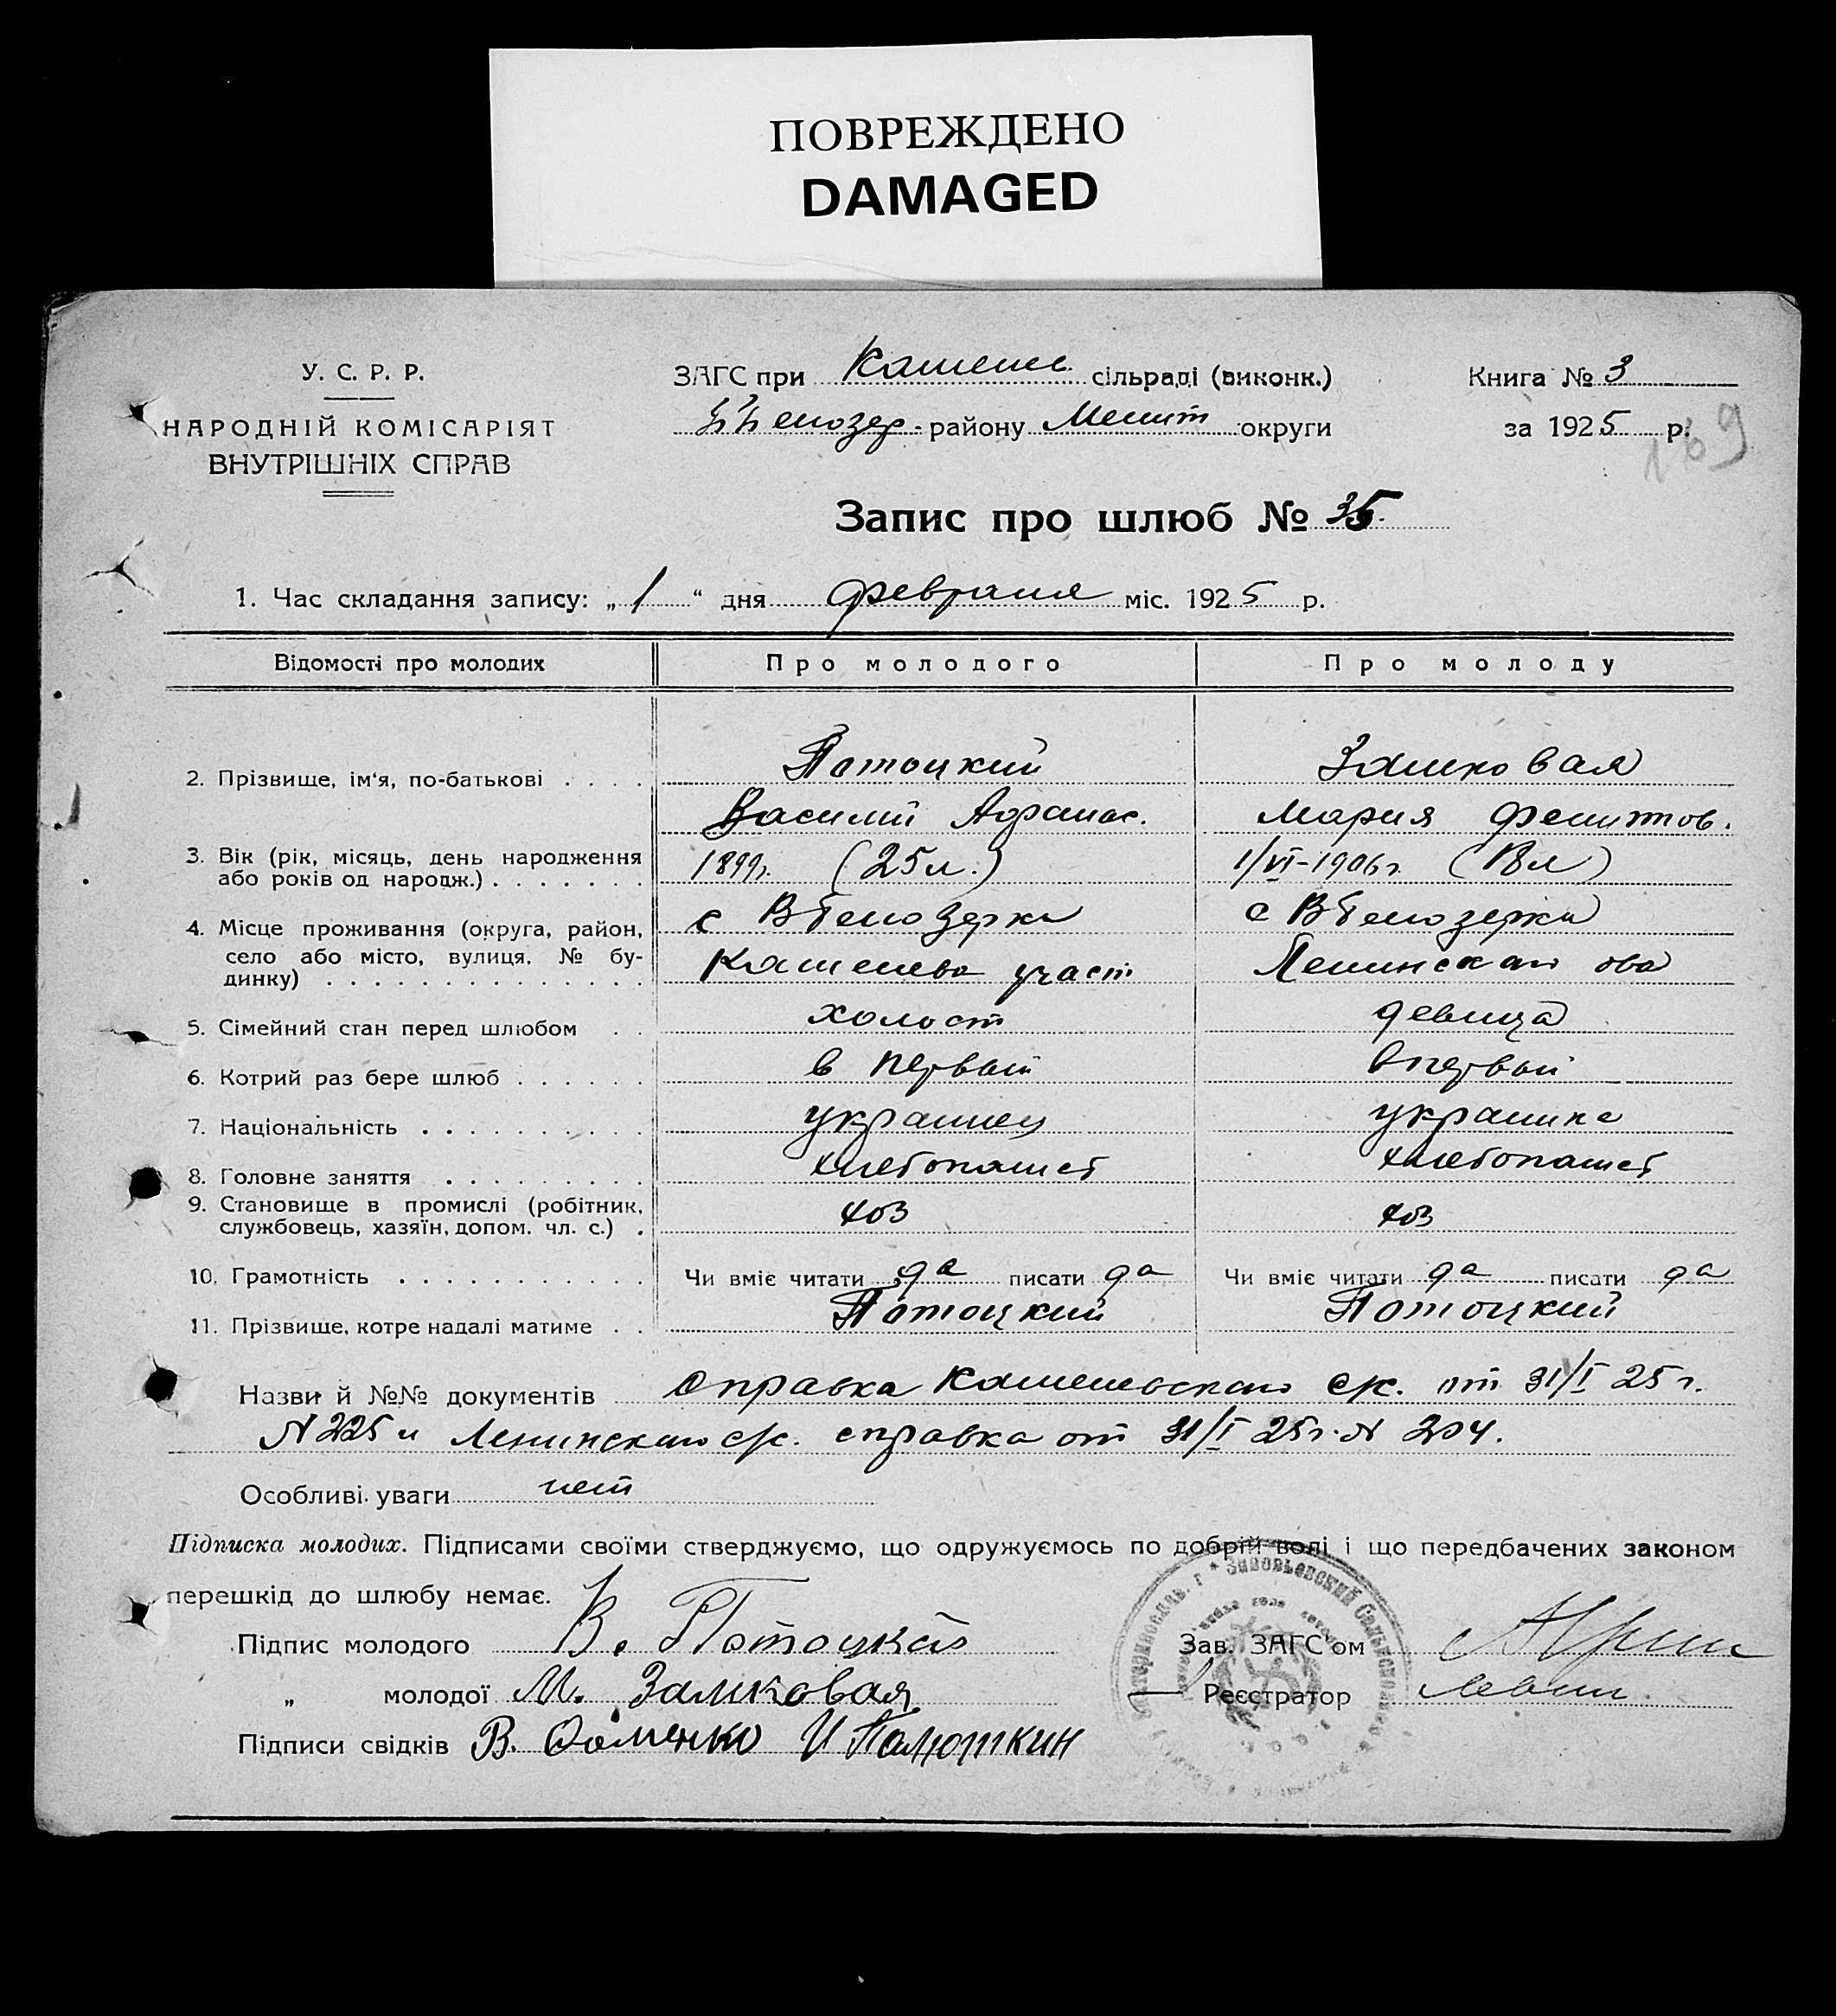 ПОВРЕЖДЕНО
DAMAGED
У. С. Р. Р.
НАРОДНІЙ КОМІСАРІЯТ
ВНУТРІШНІХ СПРАВ
ЗАГС при Каменев. сільраді (виконк.)
района району Мелит округи
Книга № 3
за 1925 р.
169
Запис про шлюб № 35.
1. Час складання запису: „ 1 “ дня февраля міс. 1925 р.
Відомості про молодих Про молодого Про молоду
2. Прізвище, ім‘я, по-батькові . . . . Потоцкий Замковая
Василий Афанас. Мария Филиппов.
3. Вік (рік, місяць, день народження або років од народж.) . . . . . . . 1899г. (25 л.) 1/VI-1906г. (18 л)
4. Місце проживання (округа, район, село або місто, вулиця, № будинку) . . . . . . . . . . . . . . с В Белозерка с В Белозерка
Каменева участ Ленинскаго
5. Сімейний стан перед шлюбом . . холост девица
6. Котрий раз бере шлюб . . . . . . в первый в первый
7. Національність . . . . . . . . . . украинец украинка
8. Головне заняття . . . . . . . . . хлебопашест хлебопашест
9. Становище в промислі (робітник, службовець, хазяїн, допом. чл. с.) . хоз хоз
10. Грамотність . . . . . . . . . . . Чи вміє читати да писати да Чи вміє читати да писати да
11. Прізвище, котре надалі матиме . . Потоцкий Потоцкий
Назви й №№ документів справка Каменевскаго с/с. от 31/I 25 г.
N 225 и Ленинскаго с/с. справка от 31/I 25 г. N 204.
Особливі уваги нет
Підписка молодих. Підписами своїми стверджуємо, що одружуємось по добрій волі і що передбачених законом
перешкід до шлюбу немає.
Підпис молодого В. Потоцкий Зав. ЗАГС‘ом
„ молодої М. Замковая Реєстратор
Підписи свідків В. И